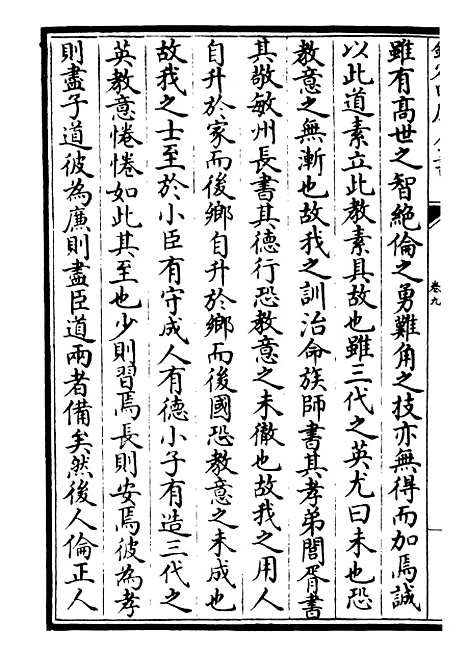 雖有髙世之智絶倫之勇難角之技亦無得而加焉誠
以此道素立此教素具故也雖三代之英尤曰未也恐
教意之無漸也故我之訓治命族師書其孝弟閭胥書
其敬敏州長書其德行恐教意之未徹也故我之用人
自升於家而後鄉自升於鄉而後國恐教意之未成也
故我之士至於小臣有守成人有德小子有造三代之
英教意惓惓如此其至也少則習焉長則安焉彼為孝
則盡子道彼為廉則盡臣道兩者備矣然後人倫正人
卷九